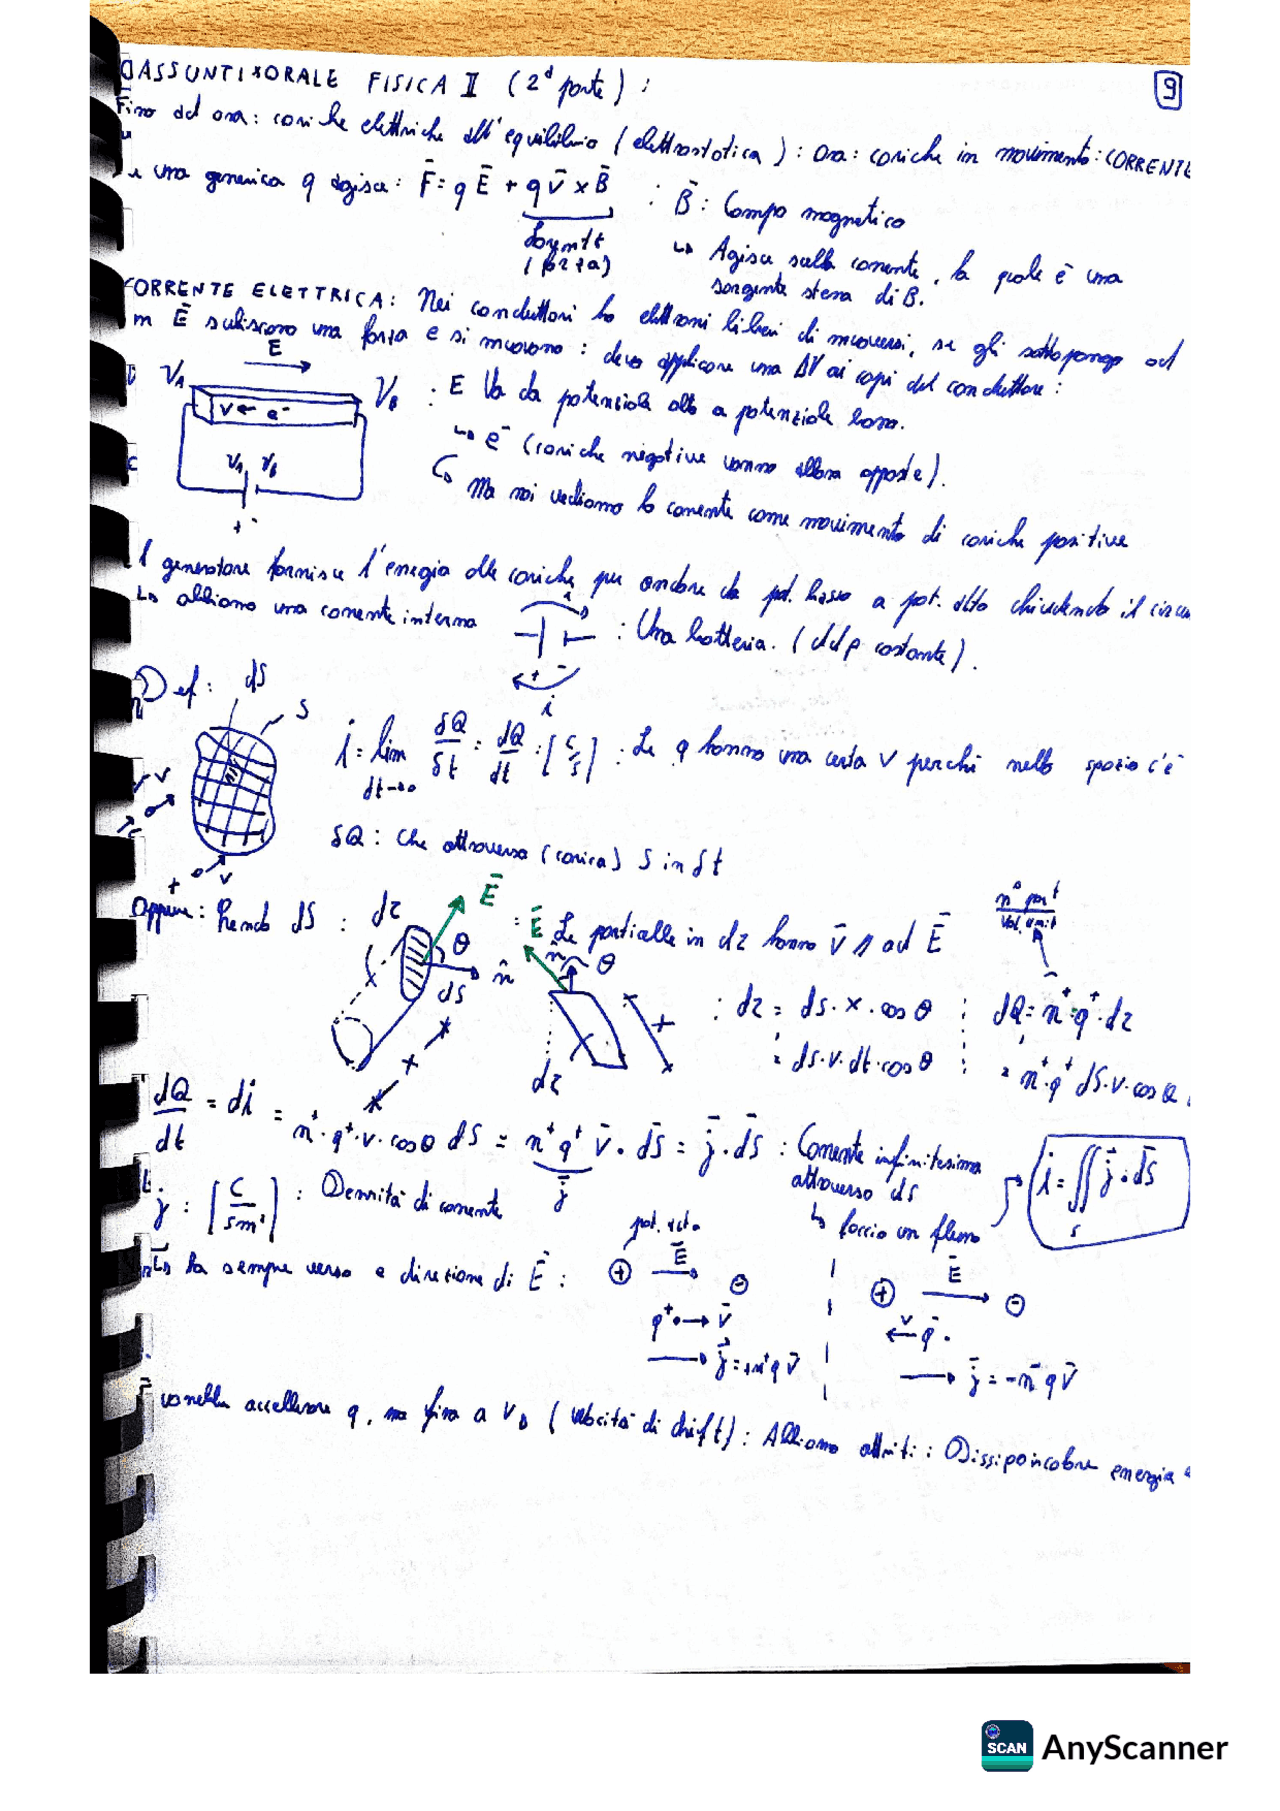 RIASSUNTI x ORALE FISICA II (2ª parte) :
9
Fino ad ora: cariche elettriche all'equilibrio (elettrostatica) : Ora: cariche in movimento: CORRENTE
una generica q agisce: F̄ = q Ē + q v̄ × B̄ : B̄ : Campo magnetico
Lorentz
(forza)
↳ Agisce sulla corrente, la quale è una
sorgente stessa di B.
CORRENTE ELETTRICA: Nei conduttori ho elettroni liberi di muoversi, se gli sottopongo ad
un Ē subiscono una forza e si muovono : devo applicare una ΔV ai capi del conduttore :
E
V_A
V_B
v ← e⁻
: E va da potenziale alto a potenziale basso.
↳ e⁻ (cariche negative vanno allora opposte).
V_A V_B
+ -
↳ Ma noi vediamo la corrente come movimento di cariche positive
Il generatore fornisce l'energia alle cariche per andare da pot. basso a pot. alto chiudendo il circu
↳ abbiamo una corrente interna
i
+ -
i
: Una batteria. (ddp costante).
Def :
dS
S
v
+
v
i = lim δQ/δt = dQ/dt : [C/s] : Le q hanno una certa v perchè nello spazio c'è
dt→0
δQ : Che attraversa (carica) S in δt
Oppure : Prendo dS :
dτ
Ē
θ
n̂
dS
x
: Le particelle in dτ hanno v̄ // ad Ē
Ē
n̂
θ
x
dτ
n° part
Vol. unit
: dτ = dS · x · cos θ
= dS · v · dt · cos θ
dQ = n⁺ · q⁺ · dτ
= n⁺ · q⁺ dS · v · cos θ
dQ/dt = di = n⁺ · q⁺ · v · cosθ dS = n⁺ q⁺ v̄ · dS̄ = j̄ · dS̄ : Corrente infinitesima
attraverso dS
j̄
↳ faccio un flusso
i = ∬ j̄ · dS̄
S
j : [C/sm²] : Densità di corrente
↳ ha sempre verso e direzione di Ē :
pot. alto
+ Ē -
q⁺ → v̄
j̄ = +n⁺q v̄
+ Ē -
v
← q⁻
j̄ = -n⁻ q v̄
vorrebbe accellerare q, ma fino a v_D (velocità di drift) : Abbiamo attriti : energia
SCAN
AnyScanner